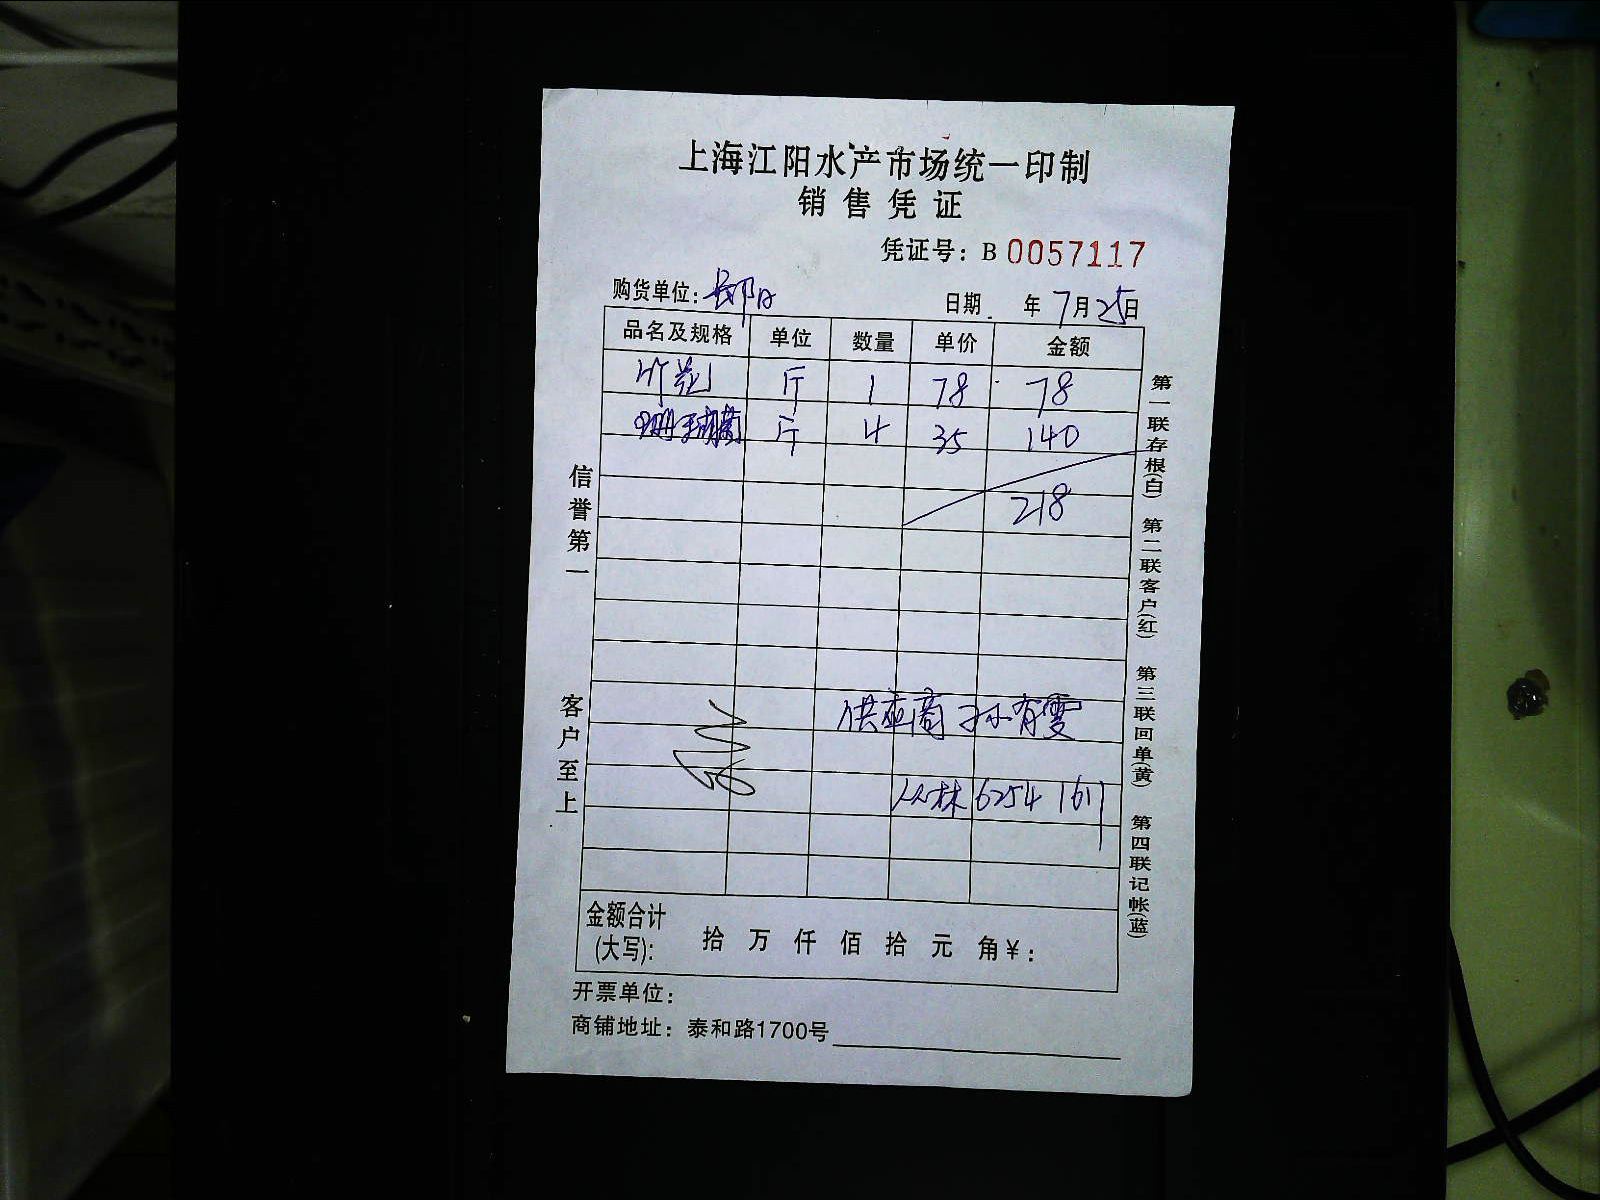 上海江阳水产市场统一印制
销售凭证
凭证号：B 0057117
购货单位：
日期 年 7月25日
品名及规格 单位 数量 单价 金额
斤 1 78 78
斤 4 35 140
218
供应商 孙有雯
丛林 6254 1611
金额合计
(大写)： 拾 万 仟 佰 拾 元 角 ¥：
开票单位：
商铺地址：泰和路1700号
信誉第一
客户至上
第一联存根(白) 第二联客户(红) 第三联回单(黄) 第四联记帐(蓝)